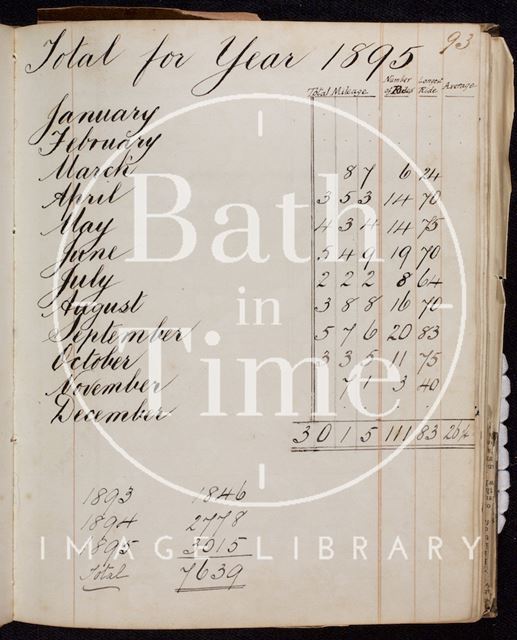 93
Total for Year 1895
Total Mileage Number of Rides Longest Ride Average
January
February
March 87 6 24
April 353 14 70
May 434 14 75
June 549 19 70
July 222 8 64
August 388 16 70
September 576 20 83
October 335 11 75
November 71 3 40
December
3015 111 83
1893 1846
1894 2778
1895 3015
Total 7639
Bath
in
Time
IMAGE LIBRARY